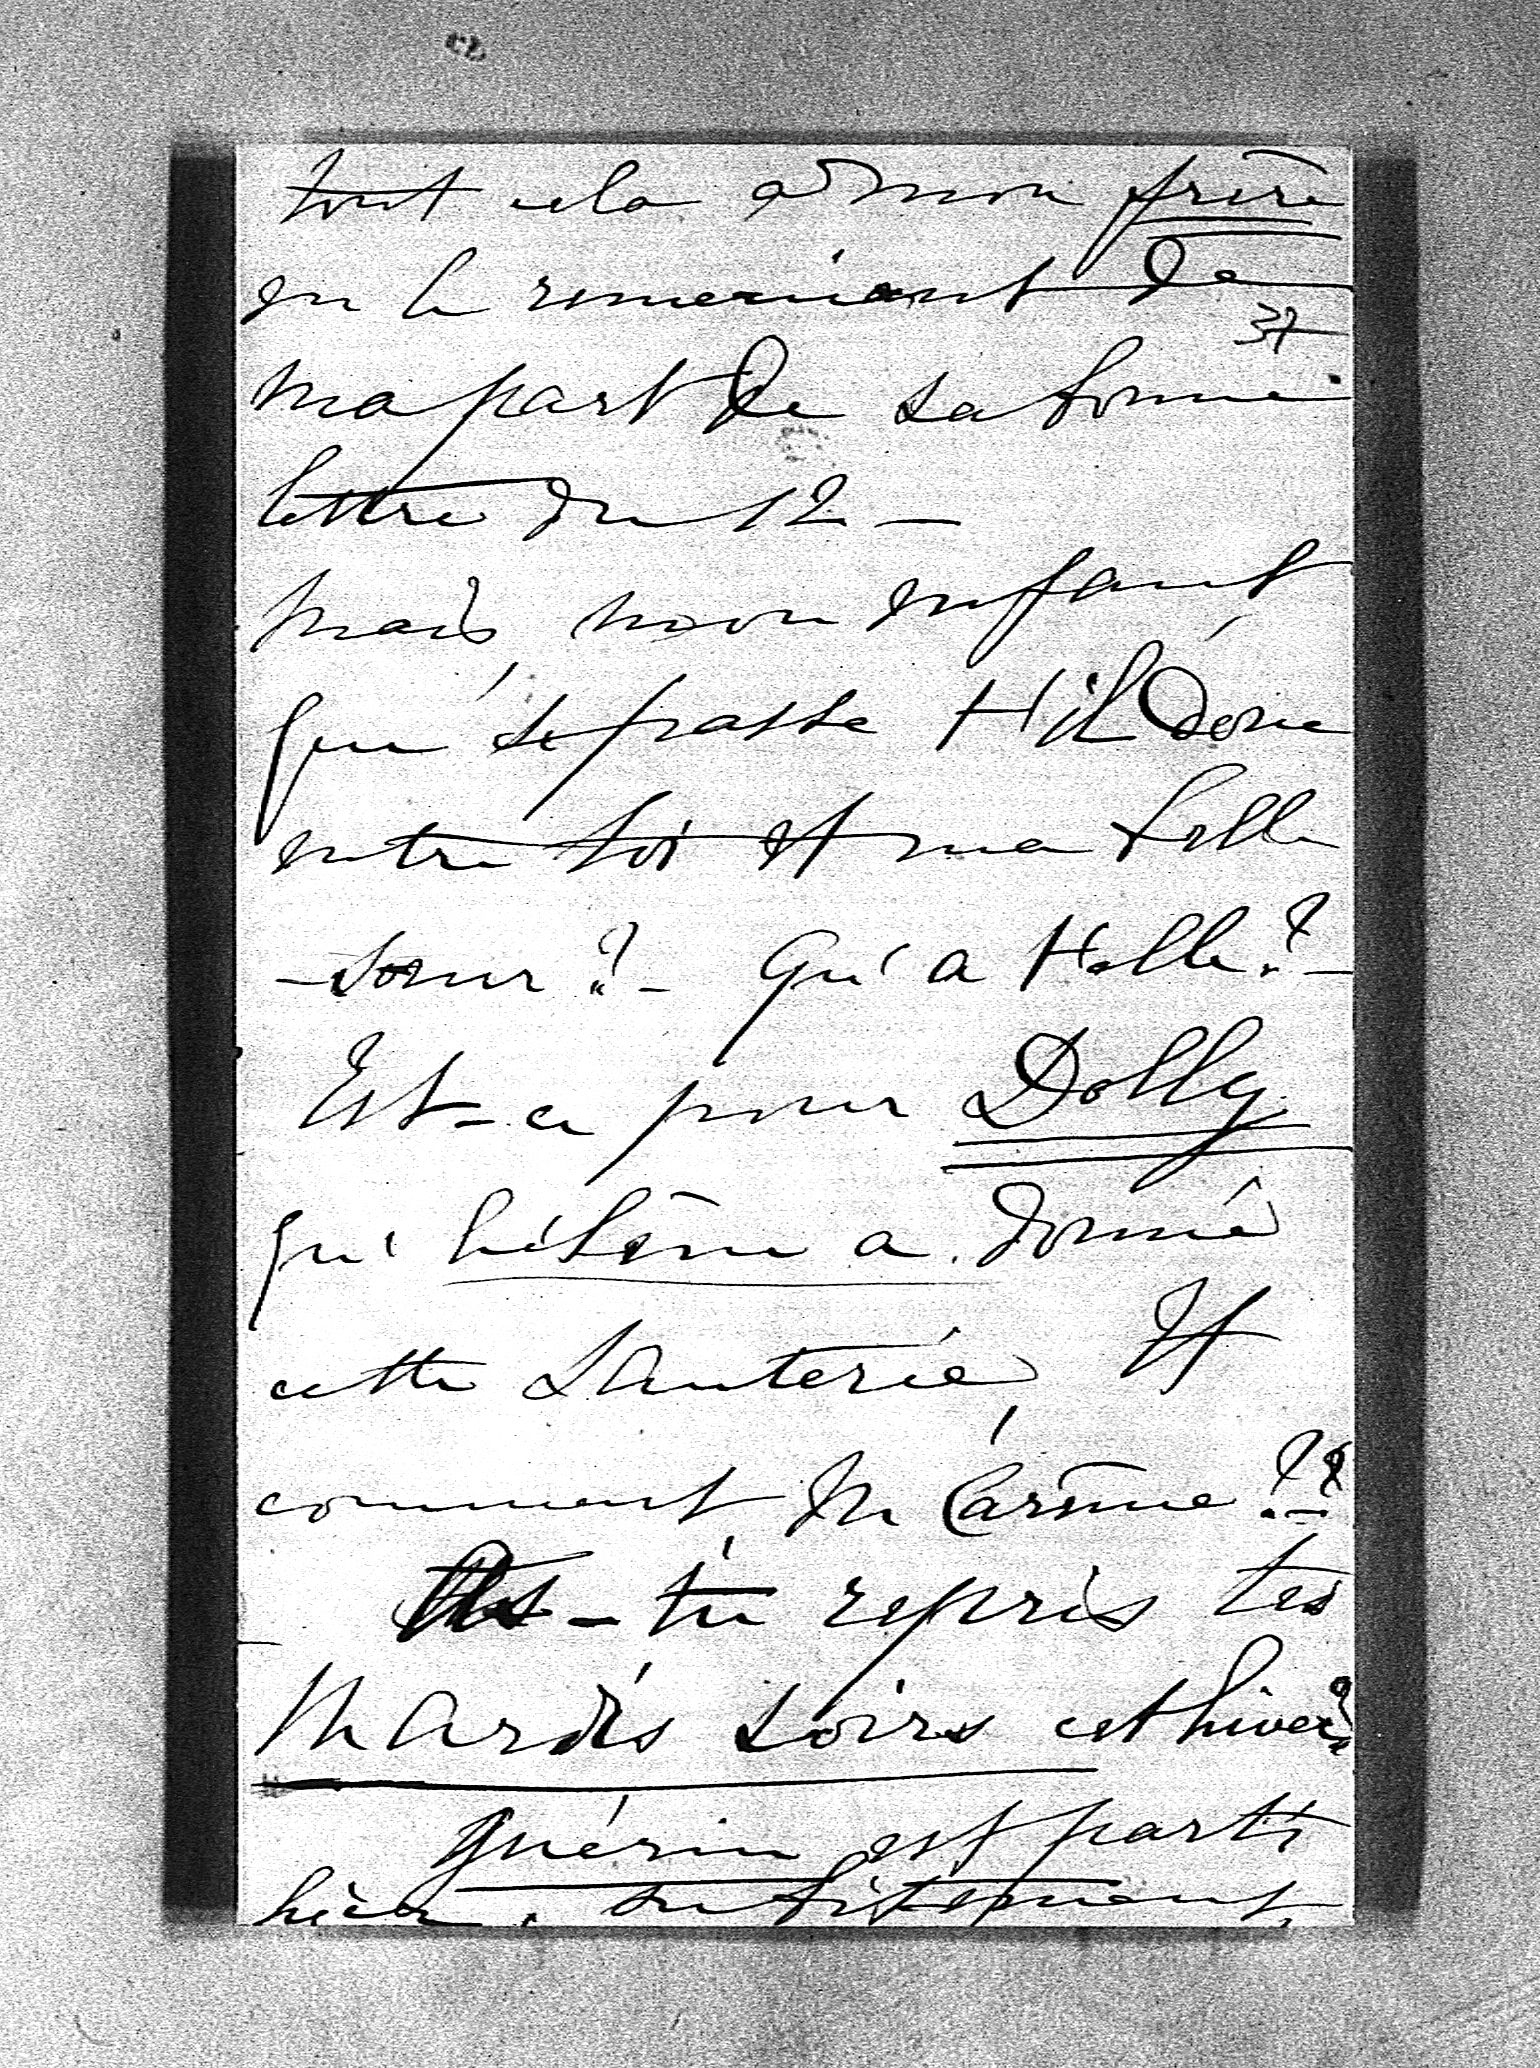 tout cela à mon frère
en le remerciant de
37
ma part de sa bonne
lettre du 12 —
Mais mon enfant
que se passe t'il donc
entre toi et ma belle
-soeur ? - Qu'a t-elle ? -
Est-ce pour Dolly
qu'hélène a donné
cette Sauterie et
comment en Carême ? ?
As-tu repris tes
Mardis soirs cet hiver ?
Guérin est parti
hier, subitement,